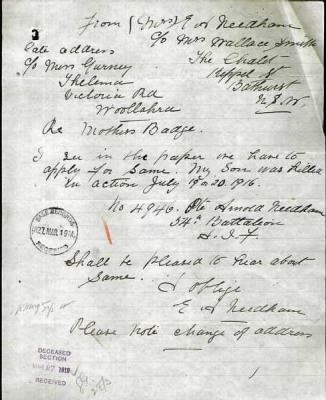 From (Mrs) E A Needham
c/o Mrs Wallace Smith
Late address
The Chalet
c/o Miss Gurney
Keppel St
Thelema
Bathurst
Victoria Rd
N.S.W.
Woollahra
Re Mothers Badge.
I see in the paper we have to
apply for same. My Son was killed
in action July 19 or 20. 1916.
No 4946. Pte Arnold Needham
54th Battalion
A.I.F
BASE RECORDS
22 MAR 191
RECEIVED
Shall be pleased to hear about
same.
I oblige
E A Needham
Please note change of address
DECEASED
SECTION
MAR 27 1919
RECEIVED